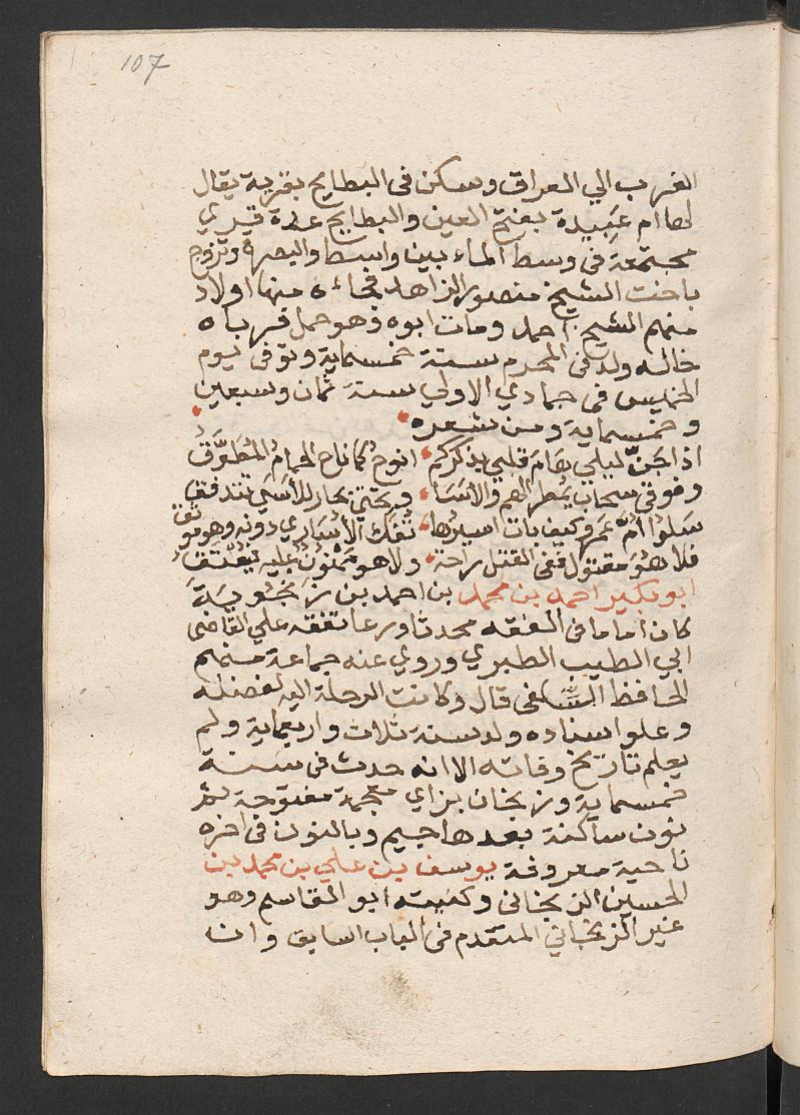 107
الغرب الي العراق وسكن في البطايح بقرية يقال
لها ام عَبِيدة بفتح العين والبطايح عدة قري
مجتمعة في وسط الماء بين واسط والبصرة وتزوج
باخت الشيخ منصور الزاهد فجاءه منها اولاد
منهم الشيخ احمد ومات ابوه وهو حمل فرباه
خاله ولد في المحرم سنة خمسماية وتوفى يوم
الخميس في جمادي الاولي سنة ثمان وسبعين
وخمسماية ومن شعره
اذا جَنّ ليلي هَامَ قلبي بذكركم انوح كما ناح الحمامُ المُطَوَّقُ
وفوقي سحاب يُمطر الهم والأسَا وتحتي بحار للأسَى تتدفق
سَلوا أمَّ عَمرو كيف بات اسيرُها تُفَكّ الأُسَاري دونه وهو موثق
فلا هُوَ مقتول ففي القتل راحة ولا هو مَمْنُونٌ عليه فيُعْتَقُ
ابو بكير احمد بن محمد بن احمد بن زَنجُويَةَ
كان اماما في الفقه محدثا ورعا تفقه علي القاضي
ابي الطيب الطبري وروي عنه جماعة منهم
الحافظ السِّلَفي قال وكانت الرحلة اليه لفضله
وعلو اسناده ولد سنة ثلاث واربعماية ولم
يعلم تاريخ وفاته الا انه حدث في سنة
خمسماية وزنجان بزاي معجمة مفتوحة ثم
نون ساكنة بعدها جيم وبالنون في اخره
ناحية معروفة يوسف بن علي بن محمد بن
الحسين الزنجاني وكنيته ابو القاسم وهو
غير الزنجاني المتقدم في الباب السابق وان